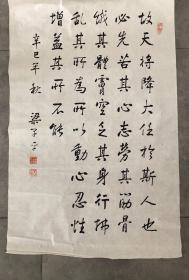 故天將降大任於斯人也
必先苦其心志勞其筋骨
餓其體膚空乏其身行拂
亂其所為所以動心忍性
增益其所不能
辛巳年秋 梁